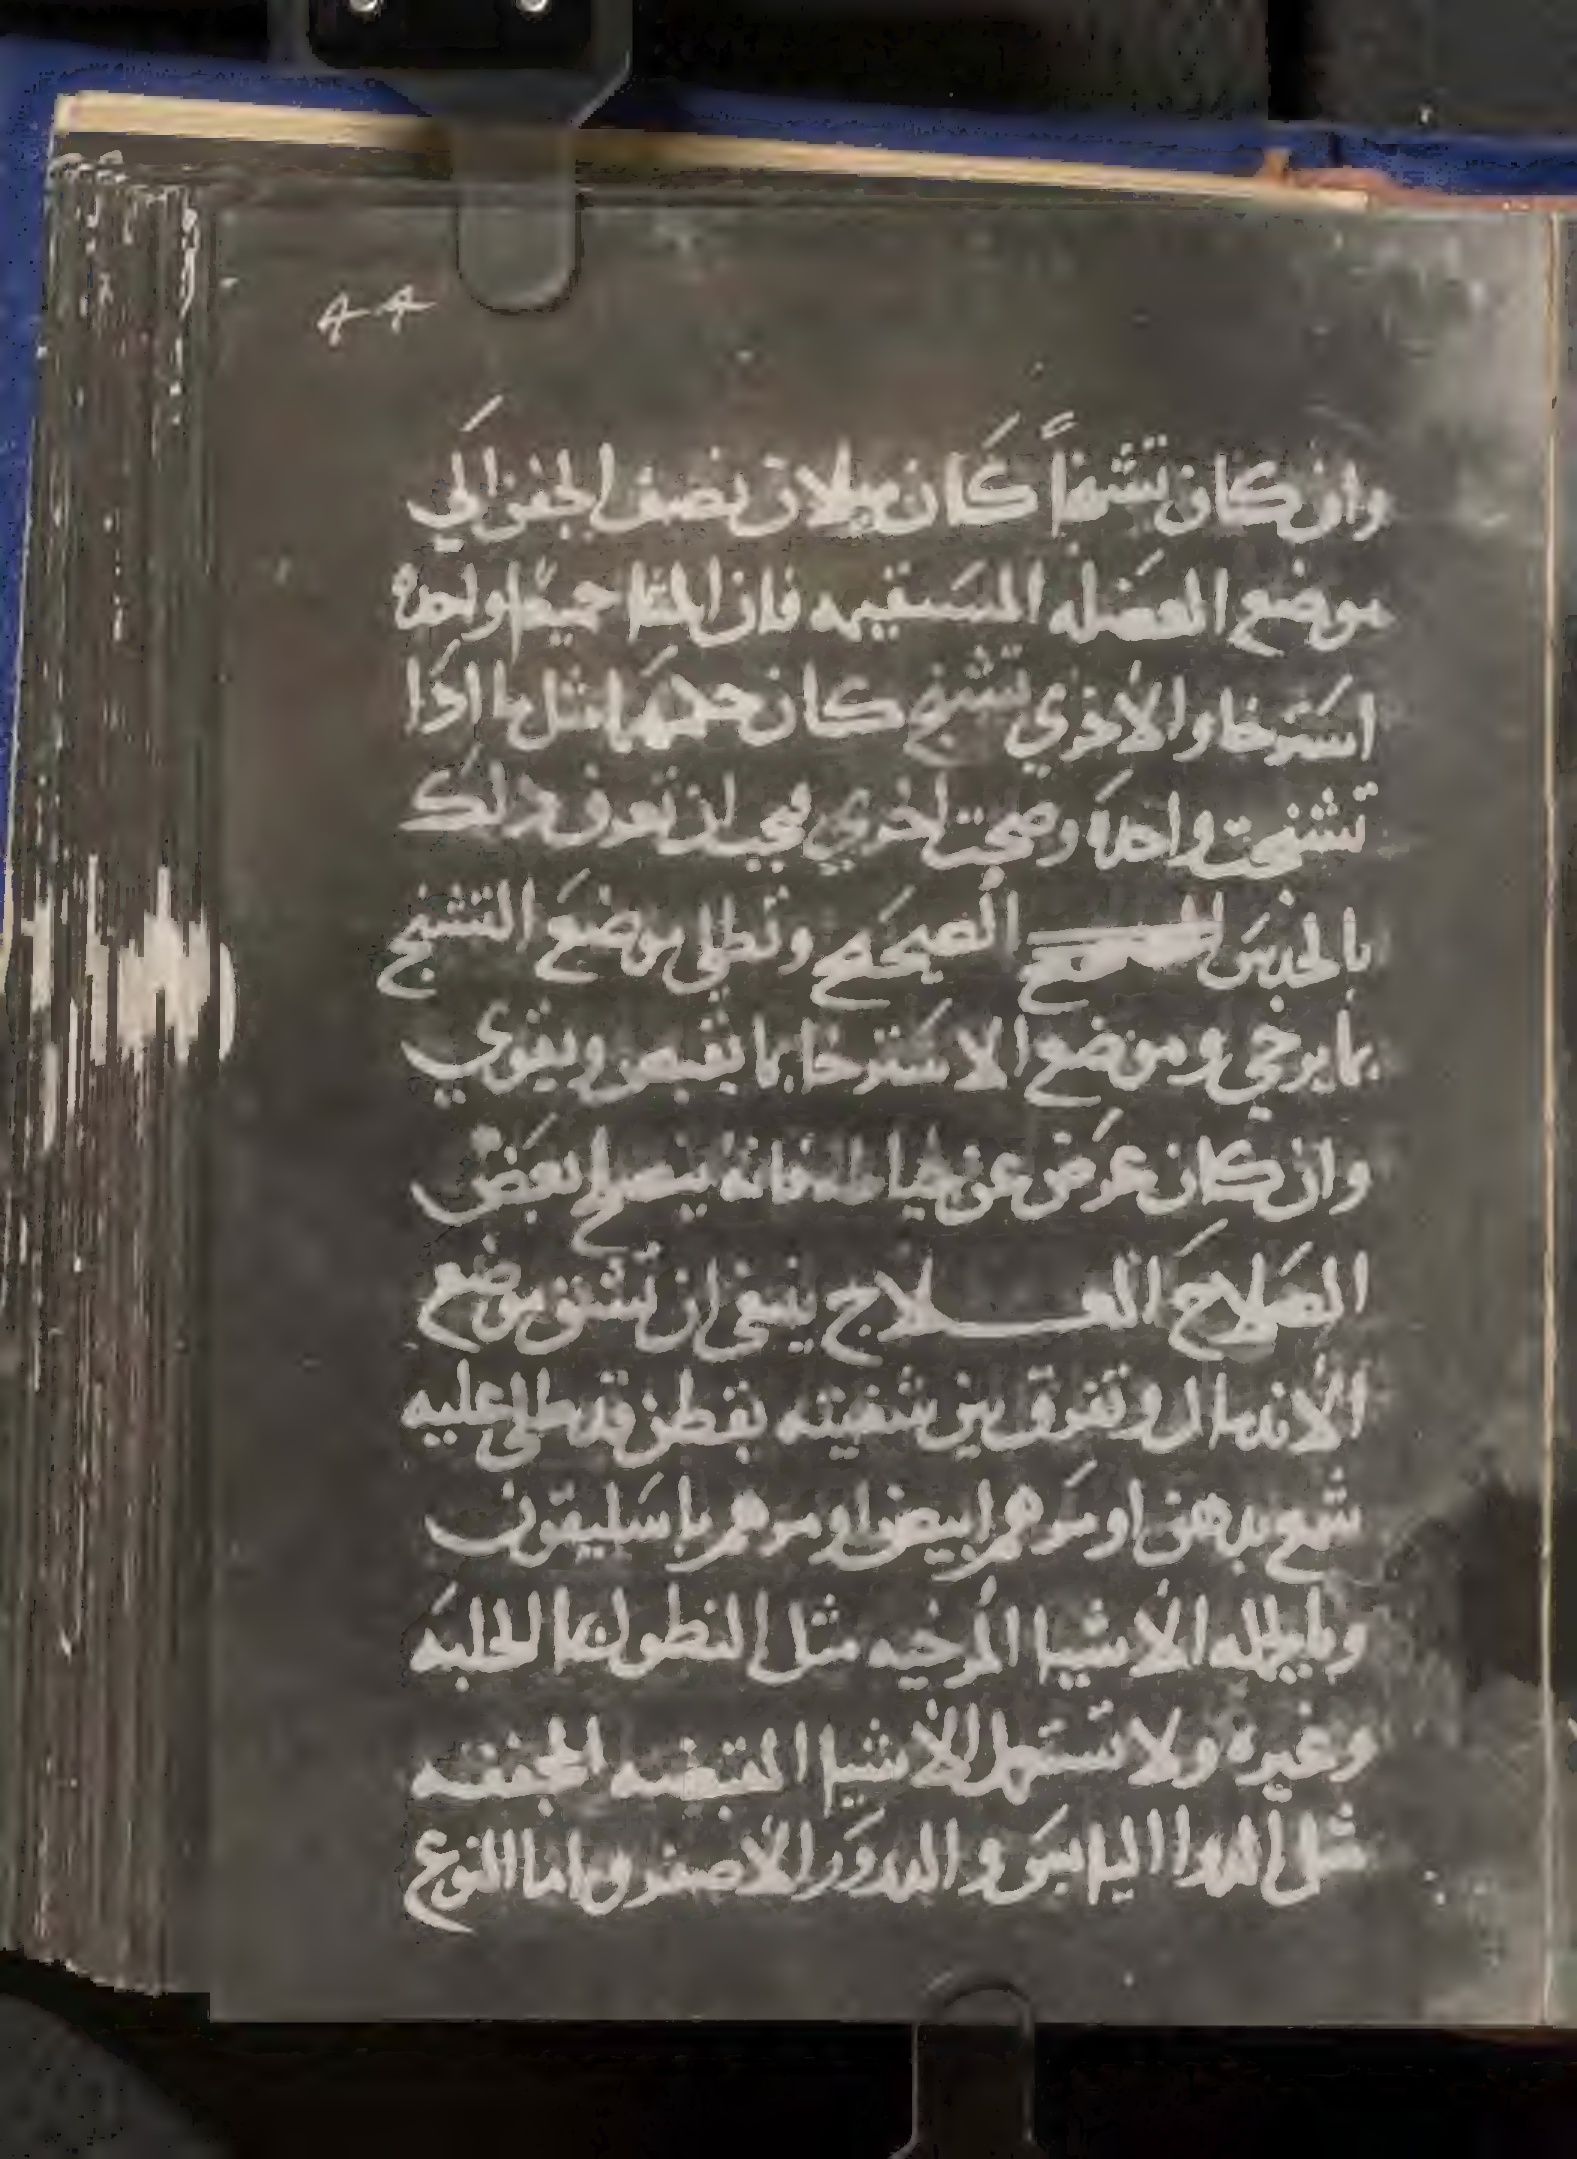 ٩٩
وان كان تشنجاً كان ميلان نصف الجفن الي
موضع العضله المستقيمه فان المتا جميعًا واحده
استرخا والأخري تشنج كان حكمها مثل ما اذا
تشنجت واحدة وصحت اخري فيجب ان تعرف ذلك
بالحدس الصحيح وتطلي موضع التشنج
بما يرخي وموضع الاسترخا بما يقبض ويقوي
وان كان عرض عن خياطه فانه ينصلح بعض
الصلاح العلاج ينبغي ان تشق موضع
الاندمال وتفرق بين شفيته بقطن قد طلي عليه
شمع بدهن او مرهم ابيض او مرهم باسليقون
وبالجمله الأشيا المرخيه مثل النطول بما الحلبه
وغيره ولا تستعمل الأشيا القبضه المجففه
مثل الدوا اليابس والدرور الأصفر واما النوع